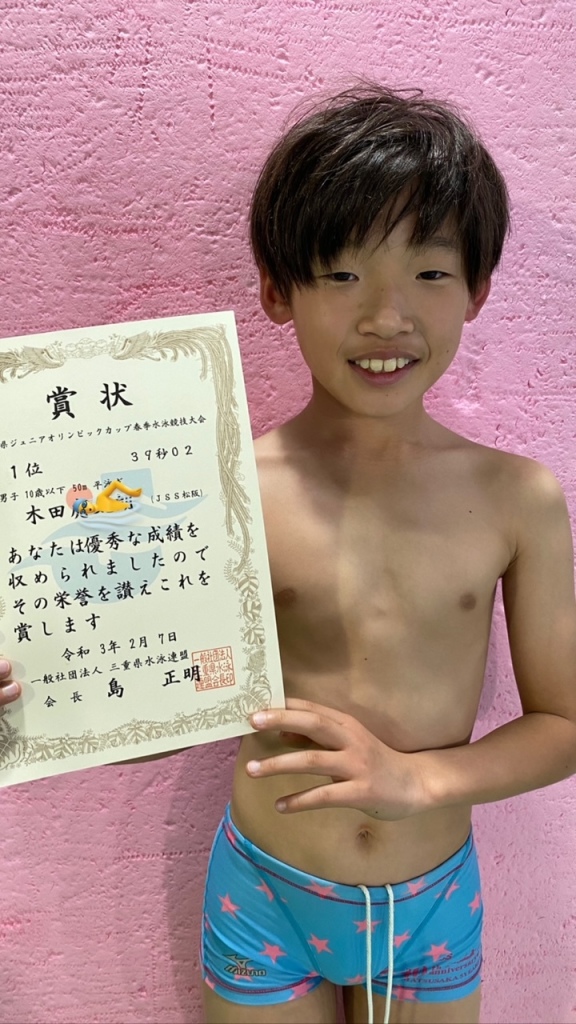 賞状
県ジュニアオリンピックカップ春季水泳競技大会
1位 39秒02
男子 10歳以下 50m 平泳ぎ
木田 (JSS松阪)
あなたは優秀な成績を
収められましたので
その栄誉を讃えこれを
賞します
令和 3年 2月 7日
一般社団法人 三重県水泳連盟
会長 島 正明
MIZUNO
Anniversary
MATSUSAKA